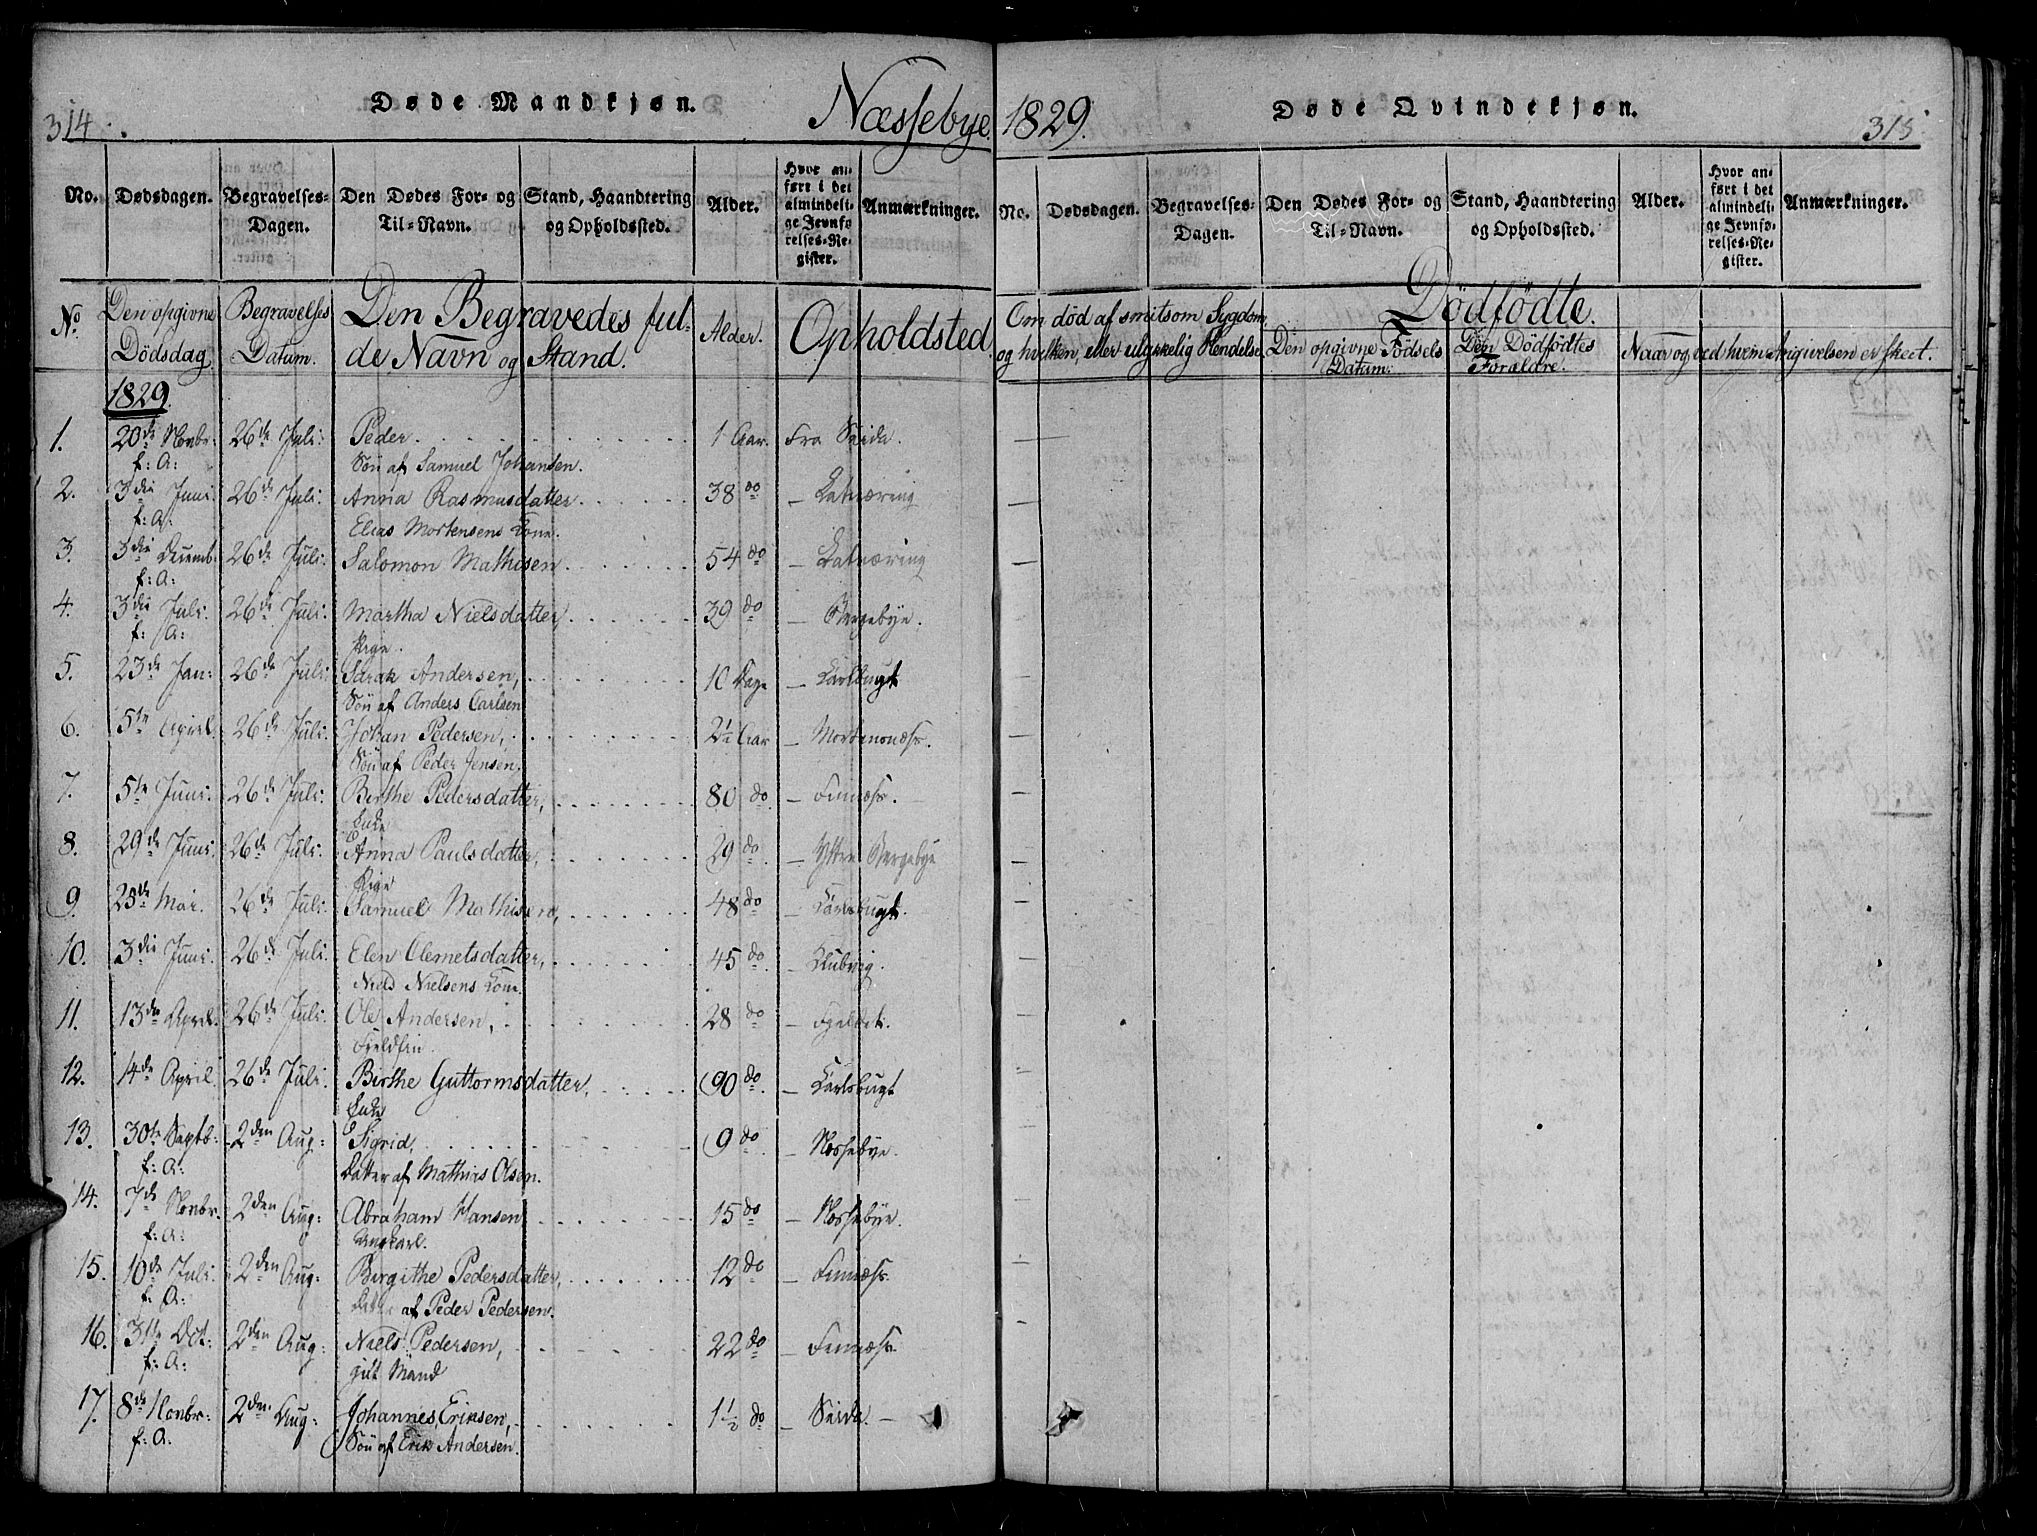 314.
Døde Mandkjøn.
Næssebye
No. Dødsdagen. Begravelses-Dagen. Den Dødes For- og Til-Navn. Stand, Haandtering og Opholdssted. Alder. Hvor anført i det almindelige Jevnførelses-Register. Anmærkninger.
No. Den opgivne Dödsdag Begravelses Datum. Den Begravedes fulde Navn og Stand. Alder. Opholdsted
1829.
1. 20de Novbr: 26de Juli: Peder 1 Aar. Fra Seida.
f: A: Sön af Samuel Johansen.
2. 3die Juni: 26de Juli: Anna Rasmusdatter 38 do —
f: A: Elias Mortensens Kone.
3. 3die Decemb: 26de Juli: Salomon Mathisen 54 do —
f: A:
4. 3die Juli: 26de Juli: Martha Nielsdatter, 39 do — Bergebye.
f: A: Pige.
5. 23de Jan: 26de Juli: Sarak Andersen, 10 Dage — Carlbugt
Sön af Anders Carlsen
6. 5te April. 26de Juli: Johan Pedersen, 2½ Aar — Mortensnæss.
Sön af Peder Jensen.
7. 5te Juni. 26de Juli: Birthe Pedersdatter, 80 do —
Enke
8. 29de Juni. 26de Juli. Anna Paulsdatter, 29 do — Yttre Bergebye
Pige
9. 25de Mai. 26de Juli. Samuel Mathisen, 48 do. — Carlsbugt.
10. 3die Juni. 26de Juli. Elen Clemetsdatter, 45 do. — Klubvig.
Nield Nielsens Kone.
11. 13de April. 26de Juli: Ole Andersen, 28 do —
Fieldfin
12. 14de April. 26de Juli: Birthe Guttormsdatter, 90 do. — Carlsbugt
Enke
13. 30te Septb: 2den Aug: Sigrid, 9 do — Næssebye.
f: A: Datter af Mathias Olsen.
14. 7de Novbr. 2den Aug: Abraham Hansen 15 do — Næssebye.
f: A: Ungkarl.
15. 10de Juli: 2den Aug: Birgithe Pedersdatter, 12 do —
f: A: Datter af Peder Pedersen.
16. 31te Oct: 2den Aug: Niels Pedersen, 22 do —
f: A: gift Mand
17. 8de Novbr: 2den Aug: Johannes Eriksen, 1½ do — Seida. —
f: A: Sön af Erik Andersen.
1829.
Døde Qvindekjøn.
315.
No. Dødsdagen. Begravelses-Dagen. Den Dødes For- og Til-Navn. Stand, Haandtering og Opholdssted. Alder. Hvor anført i det almindelige Jevnførelses-Register. Anmærkninger.
Dödfödte.
Om död af smitsom Sygdom, og hvilken, eller ulykkelig Hendelse Den opgivne Födsels Datum: Den Dödfödtes Forældre. Naar og ved hvem Angivelsen er skeet.